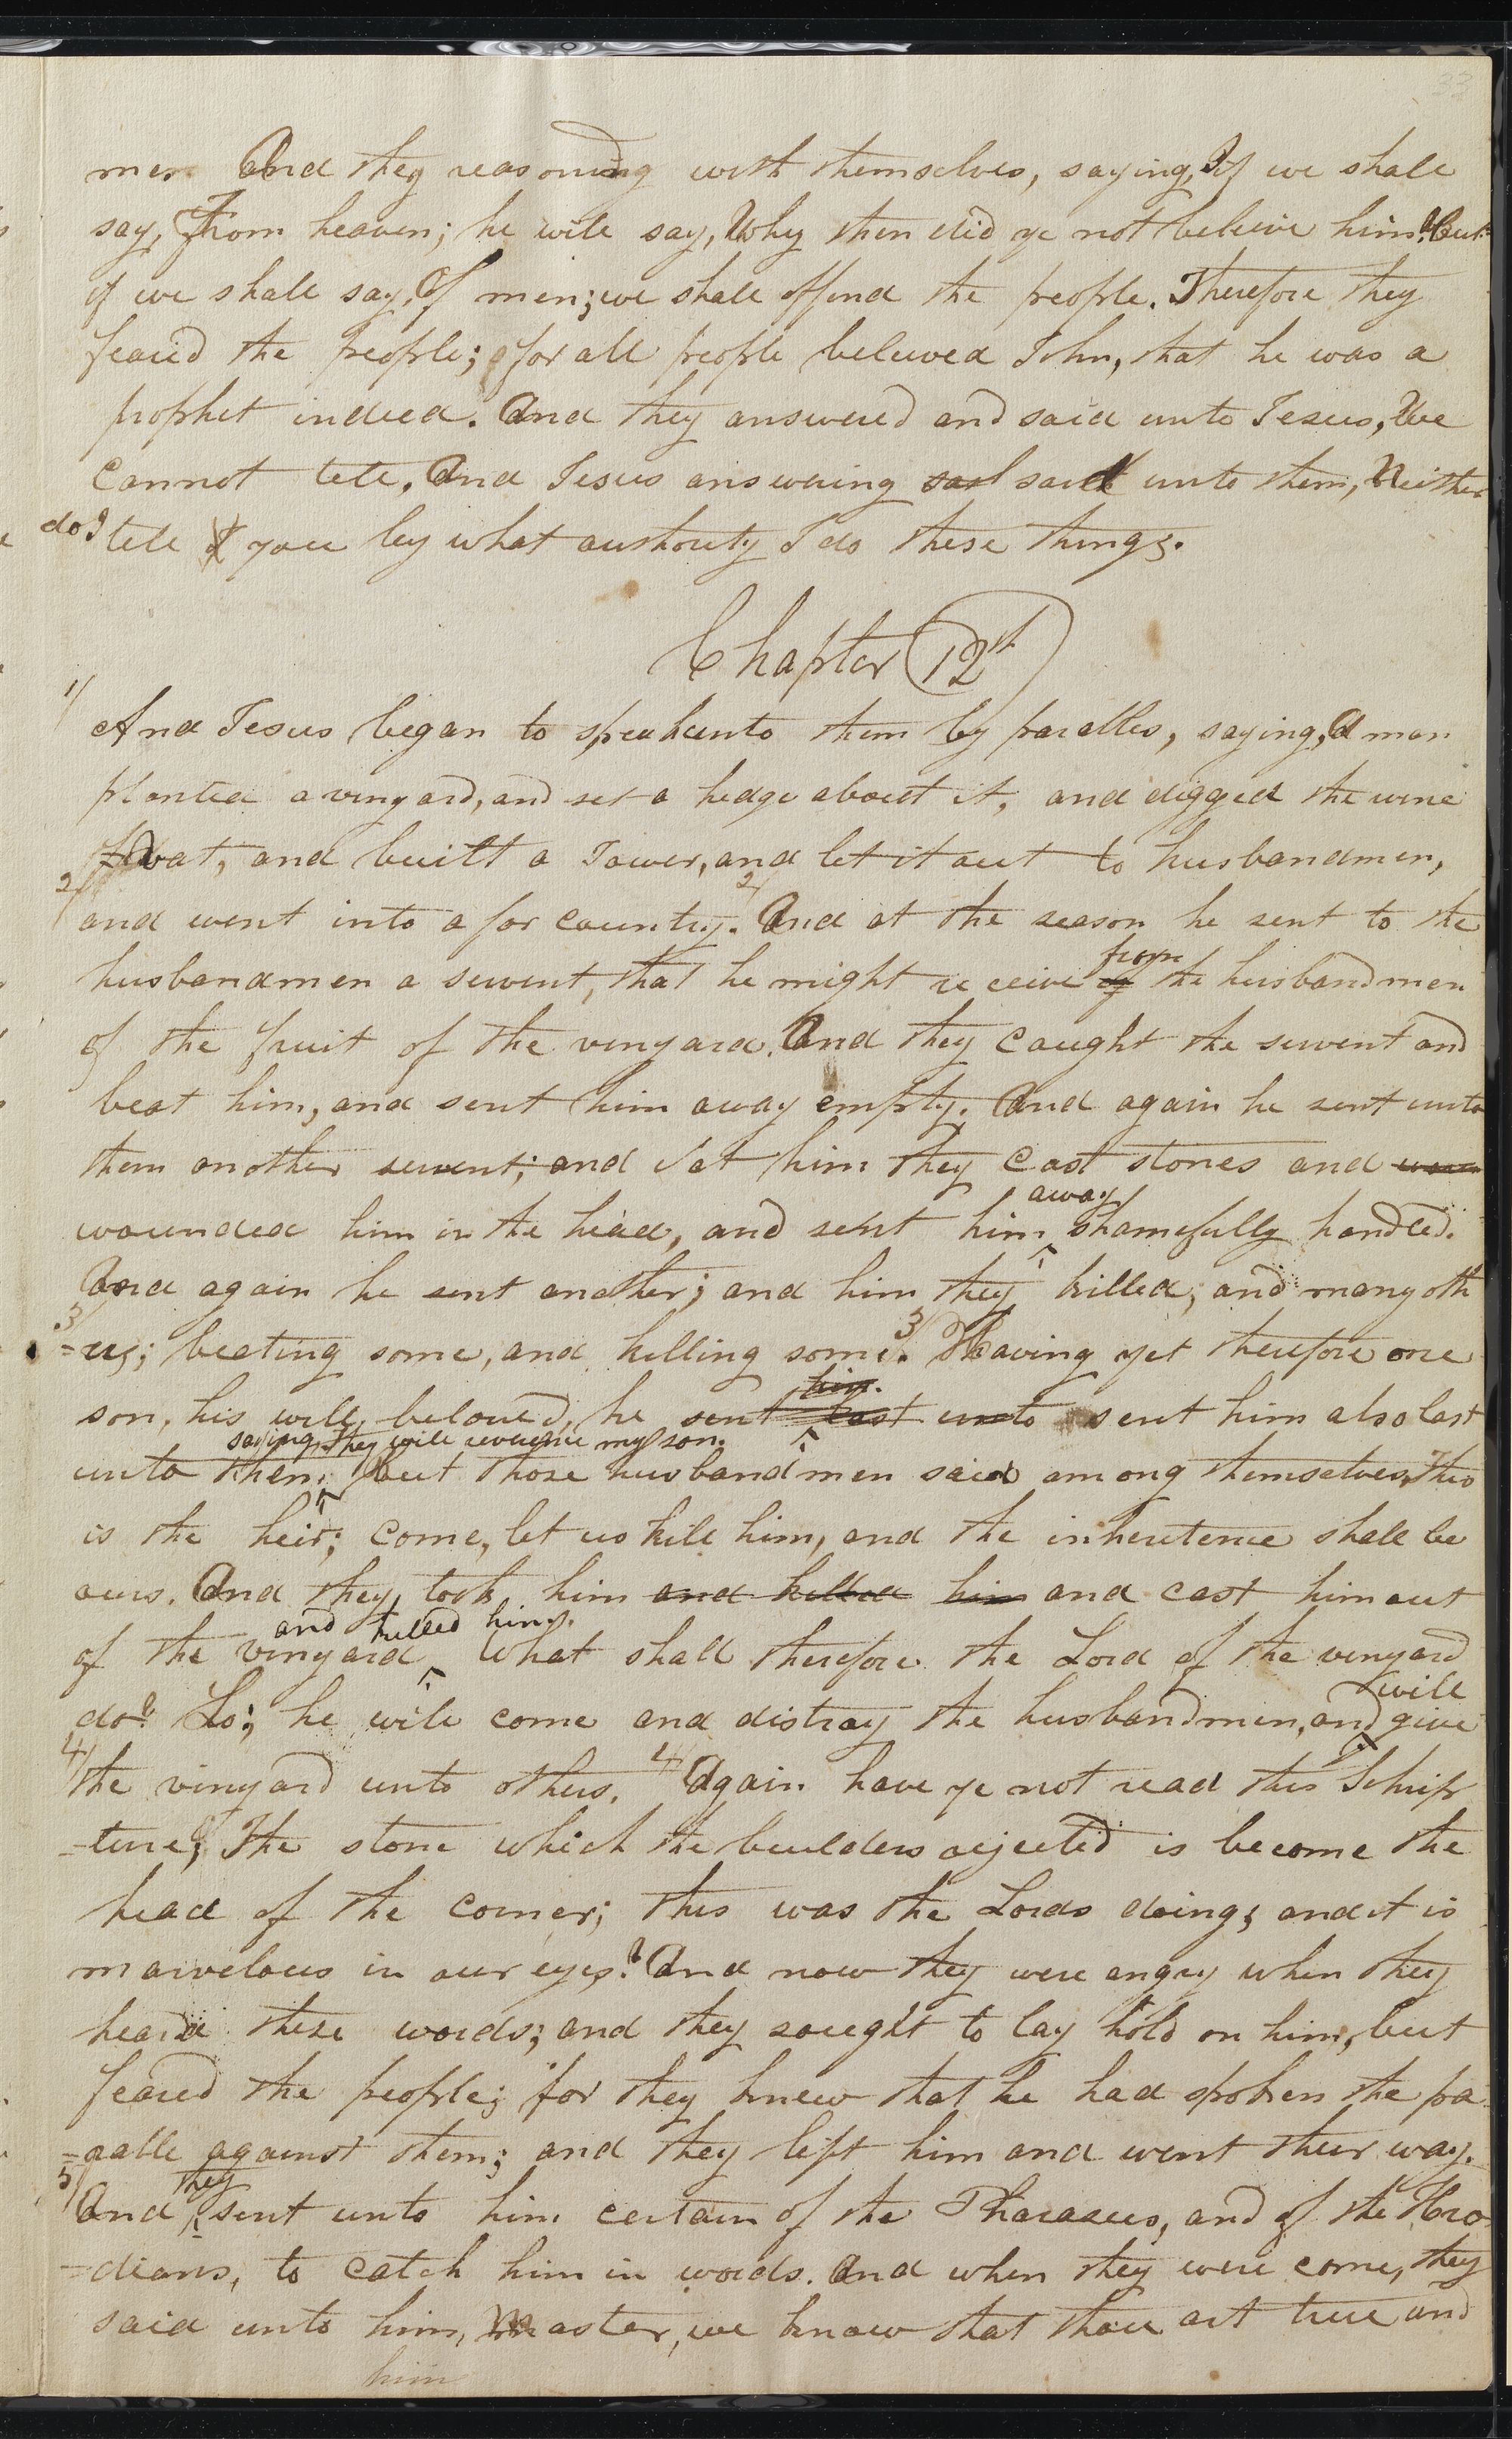 men And they reasoning with themselves, saying, If we shall
say, From heaven; he will say, Why then did ye not beleive him? But
if we shall say, Of men; we shall offend the people. Therefore they
feared the people; for all people beleived John, that he was a
prophet indeed. And they answered and said unto Jesus, We
cannot tell. And Jesus answering said unto them, Neither
do I tell I you by what authority I do these things.
Chapter 12th
1/
And Jesus began to speak unto them by parables, saying, A man
planted a vinyard, and set a hedge about it, and digged the wine
vat, and built a Tower, and let it out to husbandmen,
2/
and went into a far country. 2/ And at the season he sent to the
from
husbandmen a servent, that he might receive of the husbandmen
of the fruit of the vinyard. And they caught the servent and
beat him, and sent him away empty. And again he sent unto
them another servent; and at him they cast stones and woun
away
wounded him in the head, and sent him ^ shamefully handled.
And again he sent another; and him they killed, and many oth
3/
=ers; beeting some, and killing some. 3/ Having yet therefore one
him.
son, his well beloved, he sent last unto sent him also last
saying, They will reverence my son.
unto them; But those husbandmen said among themselves, This
is the heir; come, let us kill him, and the inheritence shall be
ours. And they took him and killed him and cast him out
and killed him.
of the vinyard ^ What shall therefore the Lord of the vinyard
will
do? Lo; he will come and distroy the husbandmen, and give
4/
the vinyard unto others. 4/ Again have ye not read this Schrip
=ture; The stone which the builders rejected is become the
head of the corner; this was the Lords doing; and it is
marvelous in our eyes? And now they were angry when they
heard these words; and they sought to lay hold on him, but
feared the people; for they knew that he had spoken the pa
=rable against them; and they left him and went their way.
5/
they
And ^ sent unto him certain of the Pharasees, and of the Hero
=dians, to catch him in words. And when they were come, they
said unto him, Master, we know that thou art true and
him